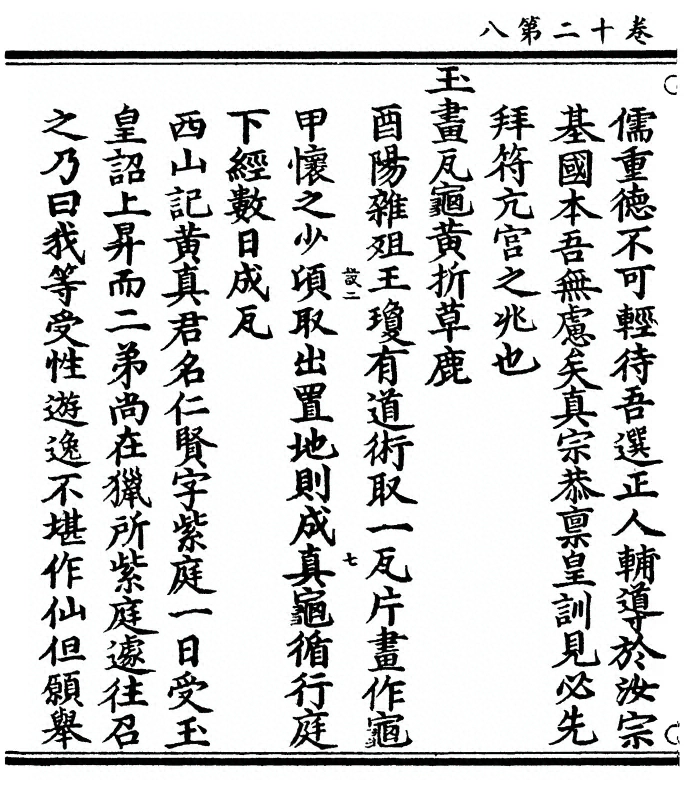 卷十二第八
儒重德不可輕待吾選正人輔導於汝宗
基國本吾無慮矣真宗恭禀皇訓見必先
拜符亢宫之兆也
玉畫瓦龜黄折草鹿
酉陽雜俎王瓊有道術取一瓦片畫作龜
二 七
甲懷之少頃取出置地則成真龜循行庭
下經數日成瓦
西山記黄真君名仁賢字紫庭一日受玉
皇詔上昇而二弟尚在獵所紫庭遽往召
之乃曰我等受性遊逸不堪作仙但願舉